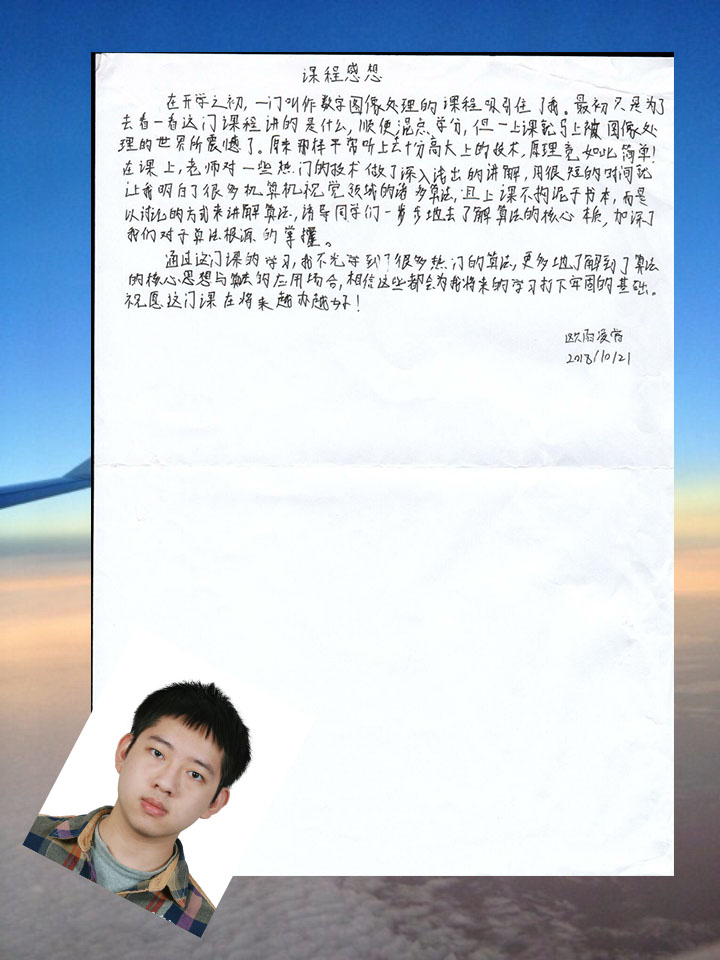 课程感想
在开学之初,一门叫作数字图像处理的课程吸引住了我。最初只是为了
去看一看这门课程讲的是什么,顺便混点学分,但一上课就马上被图像处
理的世界所震撼了。原来那样平常听上去十分高大上的技术,原理竟如此简单!
在课上,老师对一些热门的技术做了深入浅出的讲解,用很短的时间就
让我明白了很多机算机视觉领域的诸多算法,且上课不拘泥于书本,而是
以讨论的方式来讲解算法,诱导同学们一步步地去了解算法的核心本质,加深了
我们对于算法根源的掌握。
通过这门课的学习,我不光学到了很多热门的算法,更多地了解到了算法
的核心思想与算法的应用场合,相信这些都会为我将来的学习打下牢固的基础。
祝愿这门课在将来越办越好!
欧雨
2018/10/21